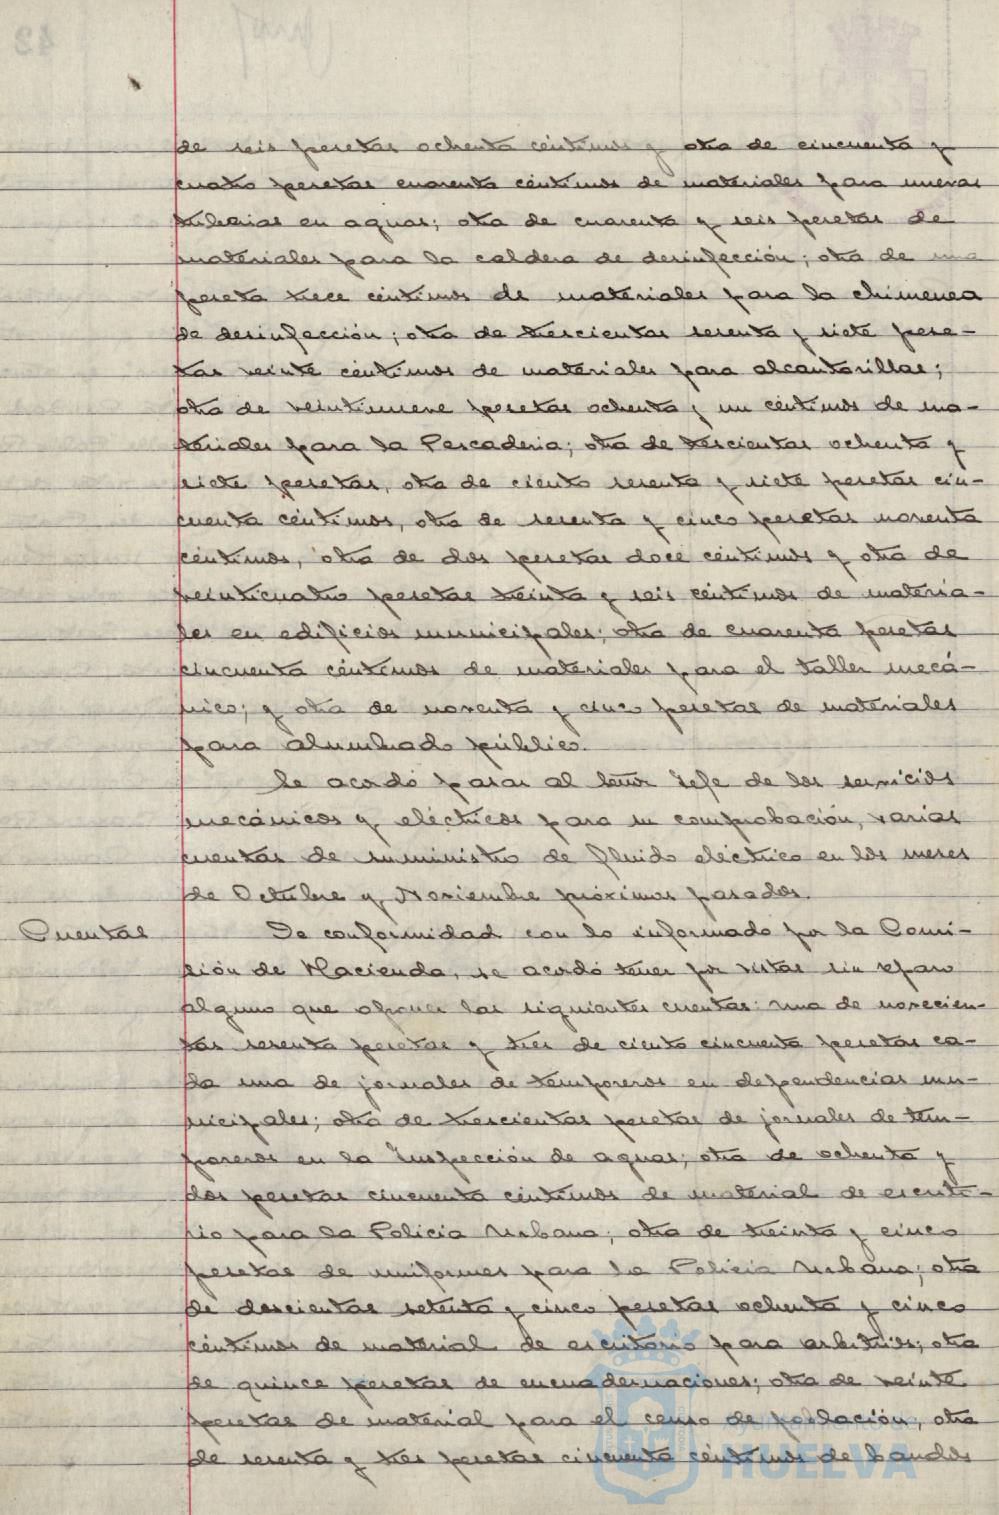 de seis pesetas ochenta céntimos y otra de cincuenta y
cuatro pesetas cuarenta céntimos de materiales para nuevas
tuberias en aguas; otra de cuarenta y seis pesetas de
materiales para la caldera de desinfección; otra de una
peseta trece céntimos de materiales para la chimenea
de desinfección; otra de trescientas sesenta y siete pese-
tas veinte céntimos de materiales para alcantarillas;
otra de veintinueve pesetas ochenta y un céntimos de ma-
teriales para la Pescaderia; otra de trescientas ochenta y
siete pesetas, otra de ciento sesenta y siete pesetas cin-
cuenta céntimos, otra de sesenta y cinco pesetas noventa
céntimos, otra de dos pesetas doce céntimos y otra de
veinticuatro pesetas treinta y seis céntimos de materia-
les en edificios municipales; otra de cuarenta pesetas
cincuenta céntimos de materiales para el taller mecá-
nico; y otra de noventa y cinco pesetas de materiales
para alumbrado público.
Se acordó pasar al Señor Jefe de los servicios
mecánicos y eléctricos para su comprobación, varias
cuentas de suministro de fluido eléctrico en los meses
de Octubre y Noviembre próximos pasados.
Cuentas De conformidad con lo informado por la Comi-
sión de Hacienda, se acordó tener por vistas sin reparo
alguno que oponer las siguientes cuentas: una de novecien-
tas sesenta pesetas y tres de ciento cincuenta pesetas ca-
da una de jornales de temporeros en dependencias mu-
nicipales; otra de trescientas pesetas de jornales de tem-
poreros en la Inspección de aguas; otra de ochenta y
dos pesetas cincuenta céntimos de material de escrito-
rio para la Policia Urbana; otra de treinta y cinco
pesetas de uniformes para la Policia Urbana; otra
de doscientas setenta y cinco pesetas ochenta y cinco
céntimos de material de escritorio para arbitrios; otra
de quince pesetas de encuadernaciones; otra de veinte
pesetas de material para el censo de población; otra
de sesenta y tres pesetas cincuenta céntimos de bandos
Ayuntamiento de
HUELVA